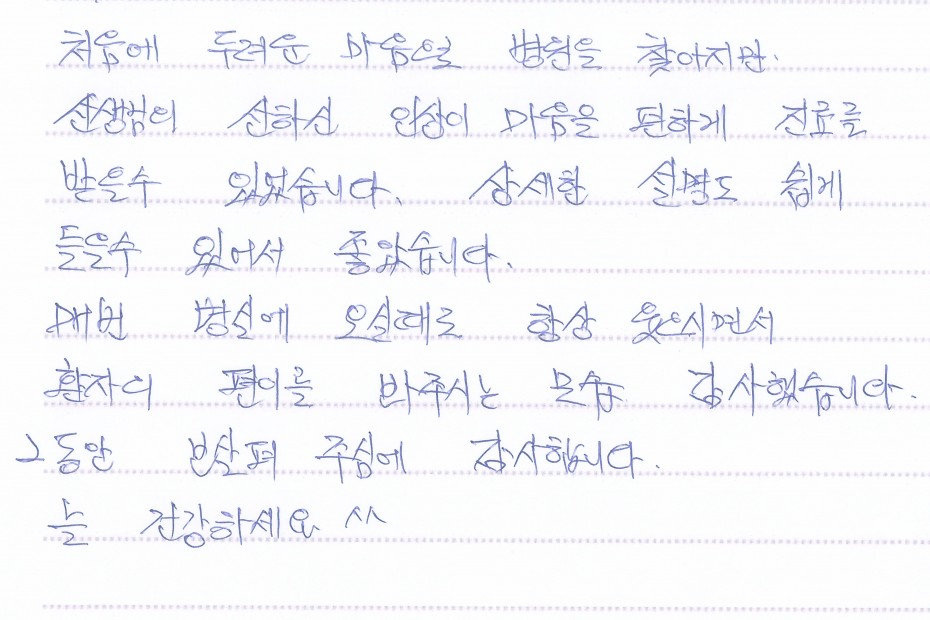 처음에 두려운 마음으로 병원을 찾아지만.
선생님의 선하신 인상이 마음을 편하게 진료를
받을수 있었습니다. 상세한 설명도 쉽게
들을수 있어서 좋았습니다.
매번 병실에 오실때로 항상 웃으시면서
환자의 편이를 봐주시는 모습 감사했습니다.
그동안 보살펴 주심에 감사합니다.
늘 건강하세요 ^^